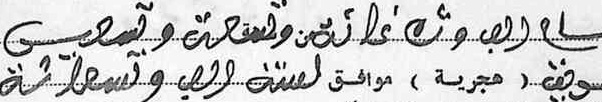 سنة الف وثلاثمائة وتسعة وتسعين
( هجرية ) موافق لسنة الف وتسعمائة